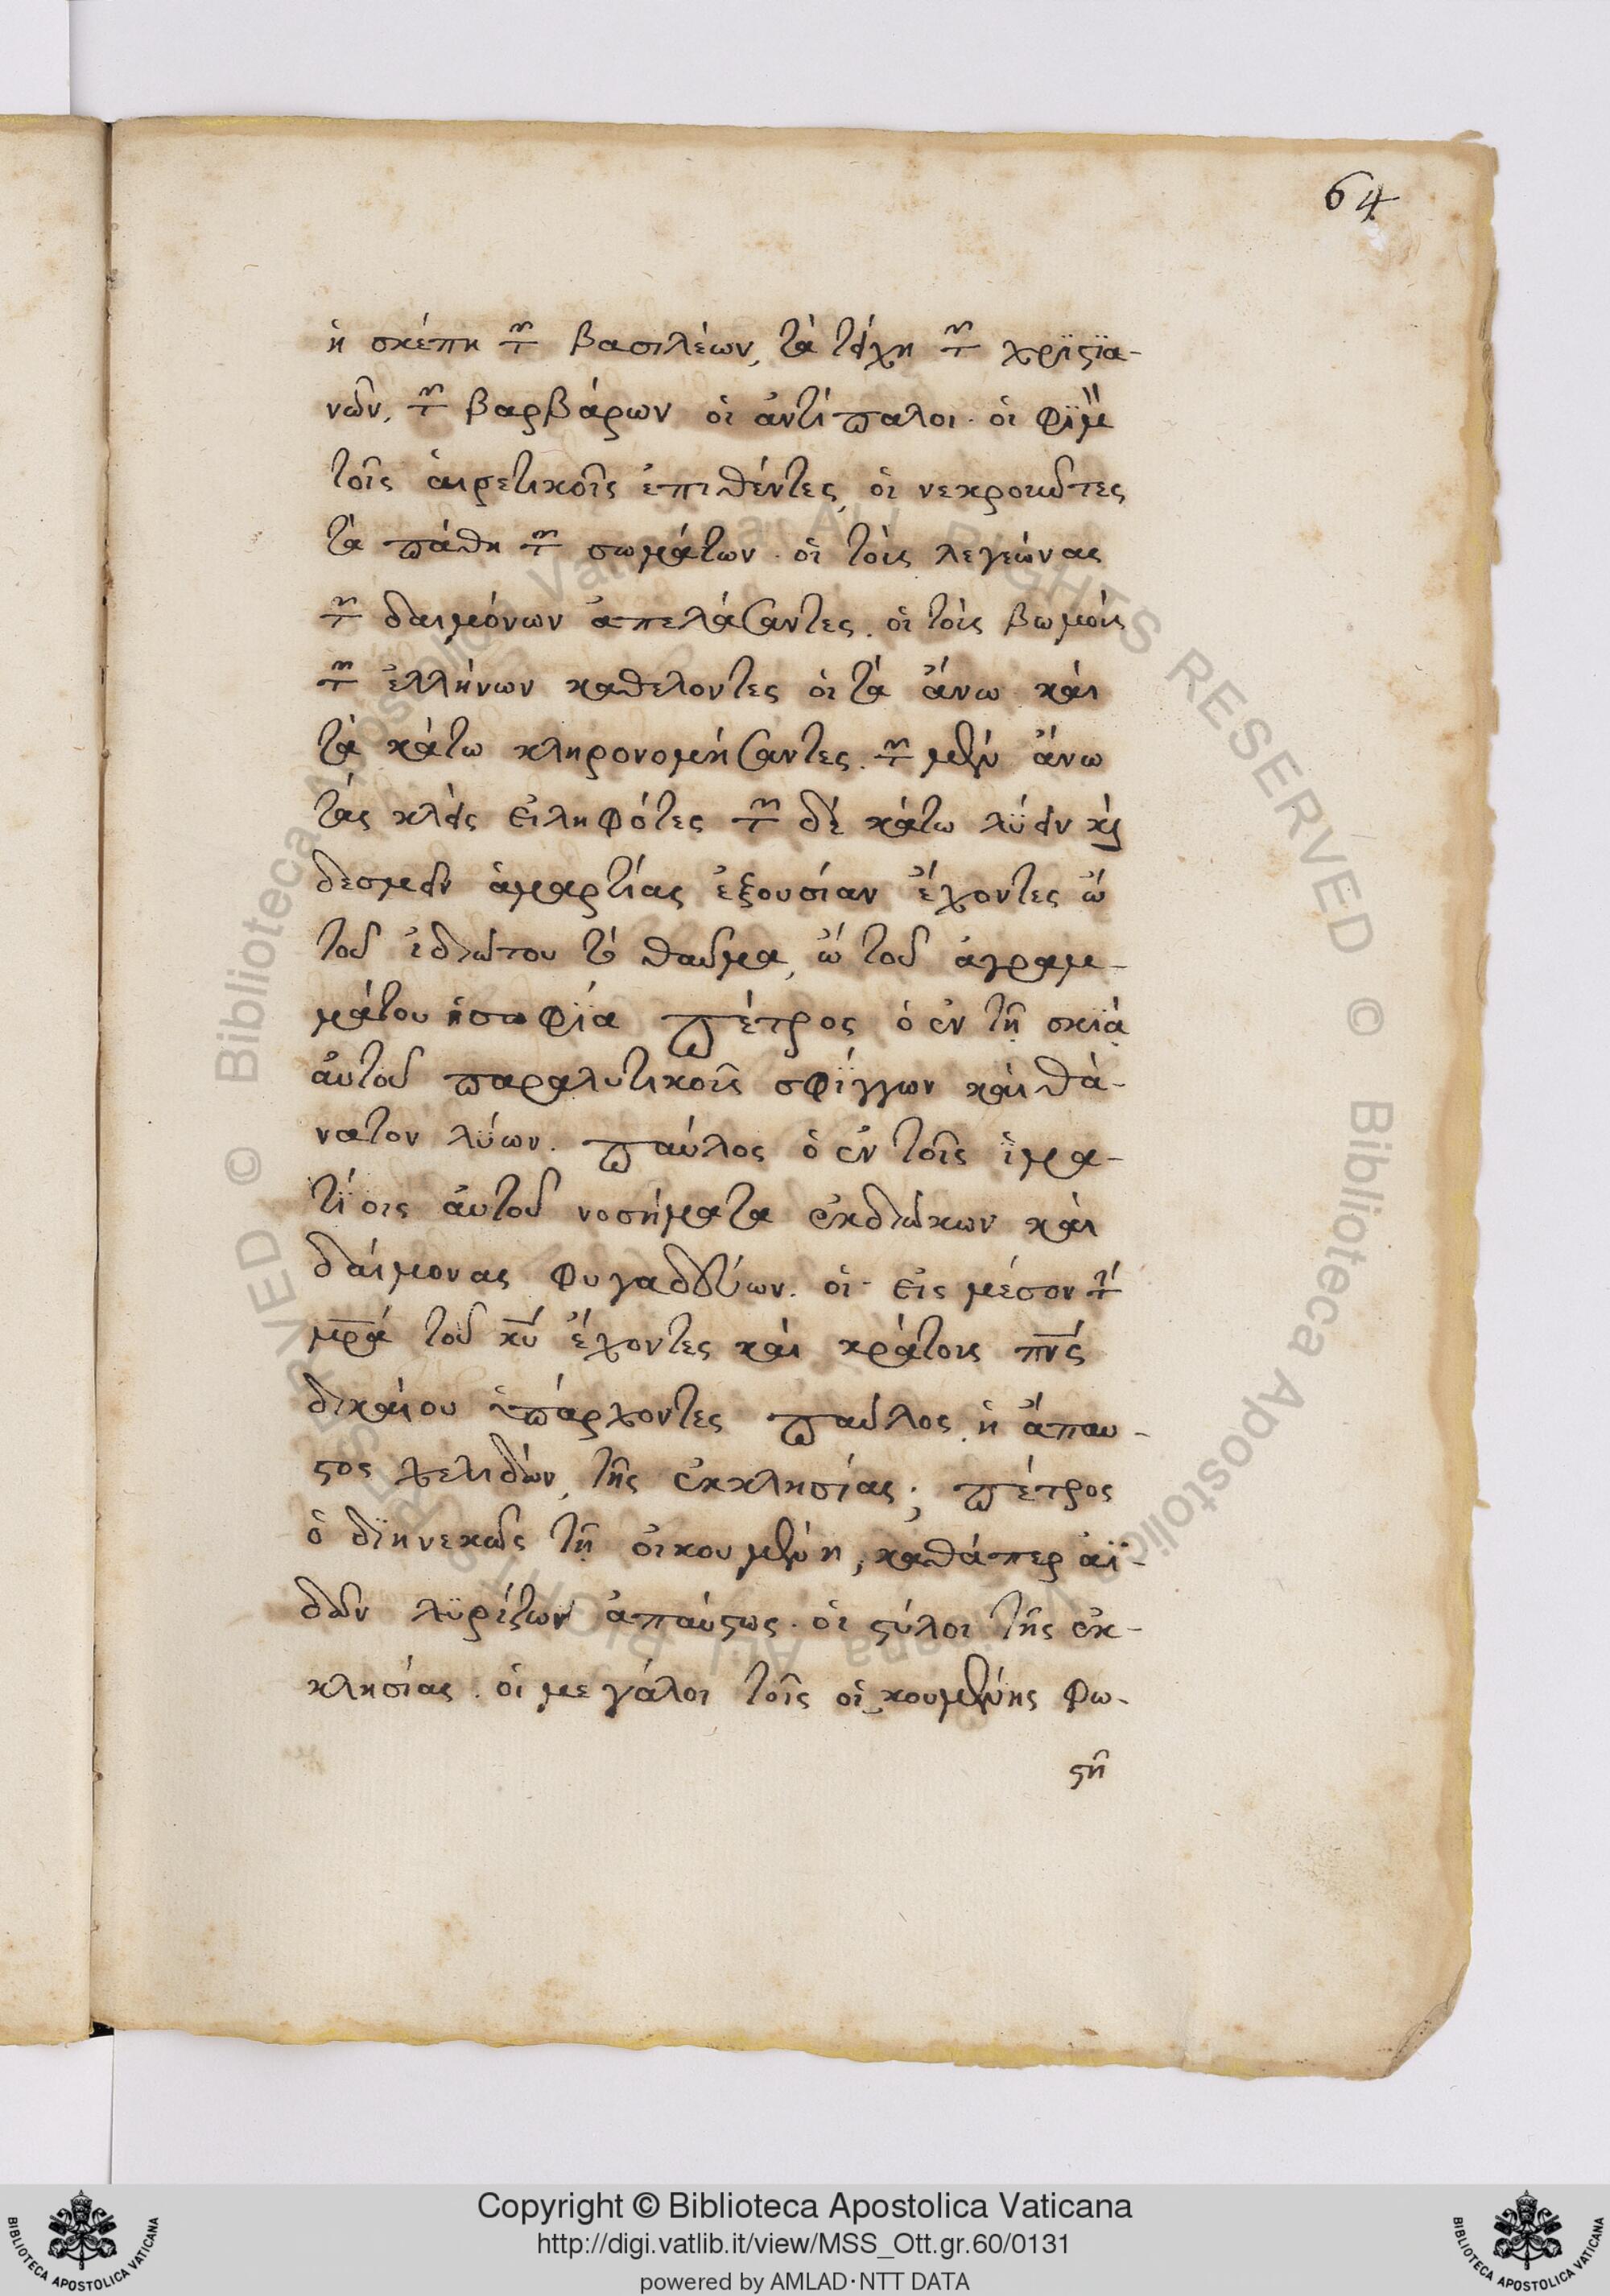 64
ἡ σκέπη τῶν βασιλέων, τὰ τείχη τῶν χρϊστϊα-
νῶν, τῶν βαρβάρων οἱ ἀντίπαλοι. οἱ φϊμὸν
τοῖς αἱρετικοῖς ἐπιθέντες, οἱ νεκροῦντες
τὰ πάθη τῶν σωμάτων. οἱ τοὺς λεγεώνας
τῶν δαιμόνων ἀπελάσαντες. οἱ τοὺς βωμοὺς
τῶν ἑλλήνων καθελοντες οἱ τὰ ἄνω καὶ
τὰ κάτω κληρονομήσαντες. τῶν μὲν ἄνω
τὰς κλεῖς εἰληφότες τῶν δὲ κάτω λύειν καὶ
δεσμεῖν ἁμαρτίας ἐξουσίαν ἔχοντες ὢ
τοῦ ἰδιώτου τὸ θαῦμα, ὢ τοῦ ἀγραμ-
μάτου ἡ σοφΐα πέτρος ὁ ἐν τῇ σκιᾷ
αὐτοῦ παραλυτικοὺς σφΐγγων καὶ θά-
νατον λύων. παύλος ὁ ἐν τοῖς ἱμα-
τίοις αὐτοῦ νοσήματα ἐκδιώκων καὶ
δαίμονας φυγαδεύων. οἱ εἰς μέσον τὴν
μρα τοῦ κυ ἔχοντες καὶ κράτους πνς
δικαίου ὑπάρχοντες παῦλος ἡ ἄπαυ-
στος χελιδὼν, τῆς ἐκκλησίας; πέτρος
ὁ διηνεκῶς τῇ οἰκουμένη, καθάπερ ἀϊ-
δὼν λυρίζων ἀπαύστως. οἱ στύλοι τῆς ἐκ-
κλησίας. οἱ μεγάλοι τοῖς οἰκουμένης φω-
στῆ
Copyright © Biblioteca Apostolica Vaticana
http://digi.vatlib.it/view/MSS_Ott.gr.60/0131
powered by AMLAD·NTT DATA
BIBLIOTECA APOSTOLICA VATICANA
BIBLIOTECA APOSTOLICA VATICANA